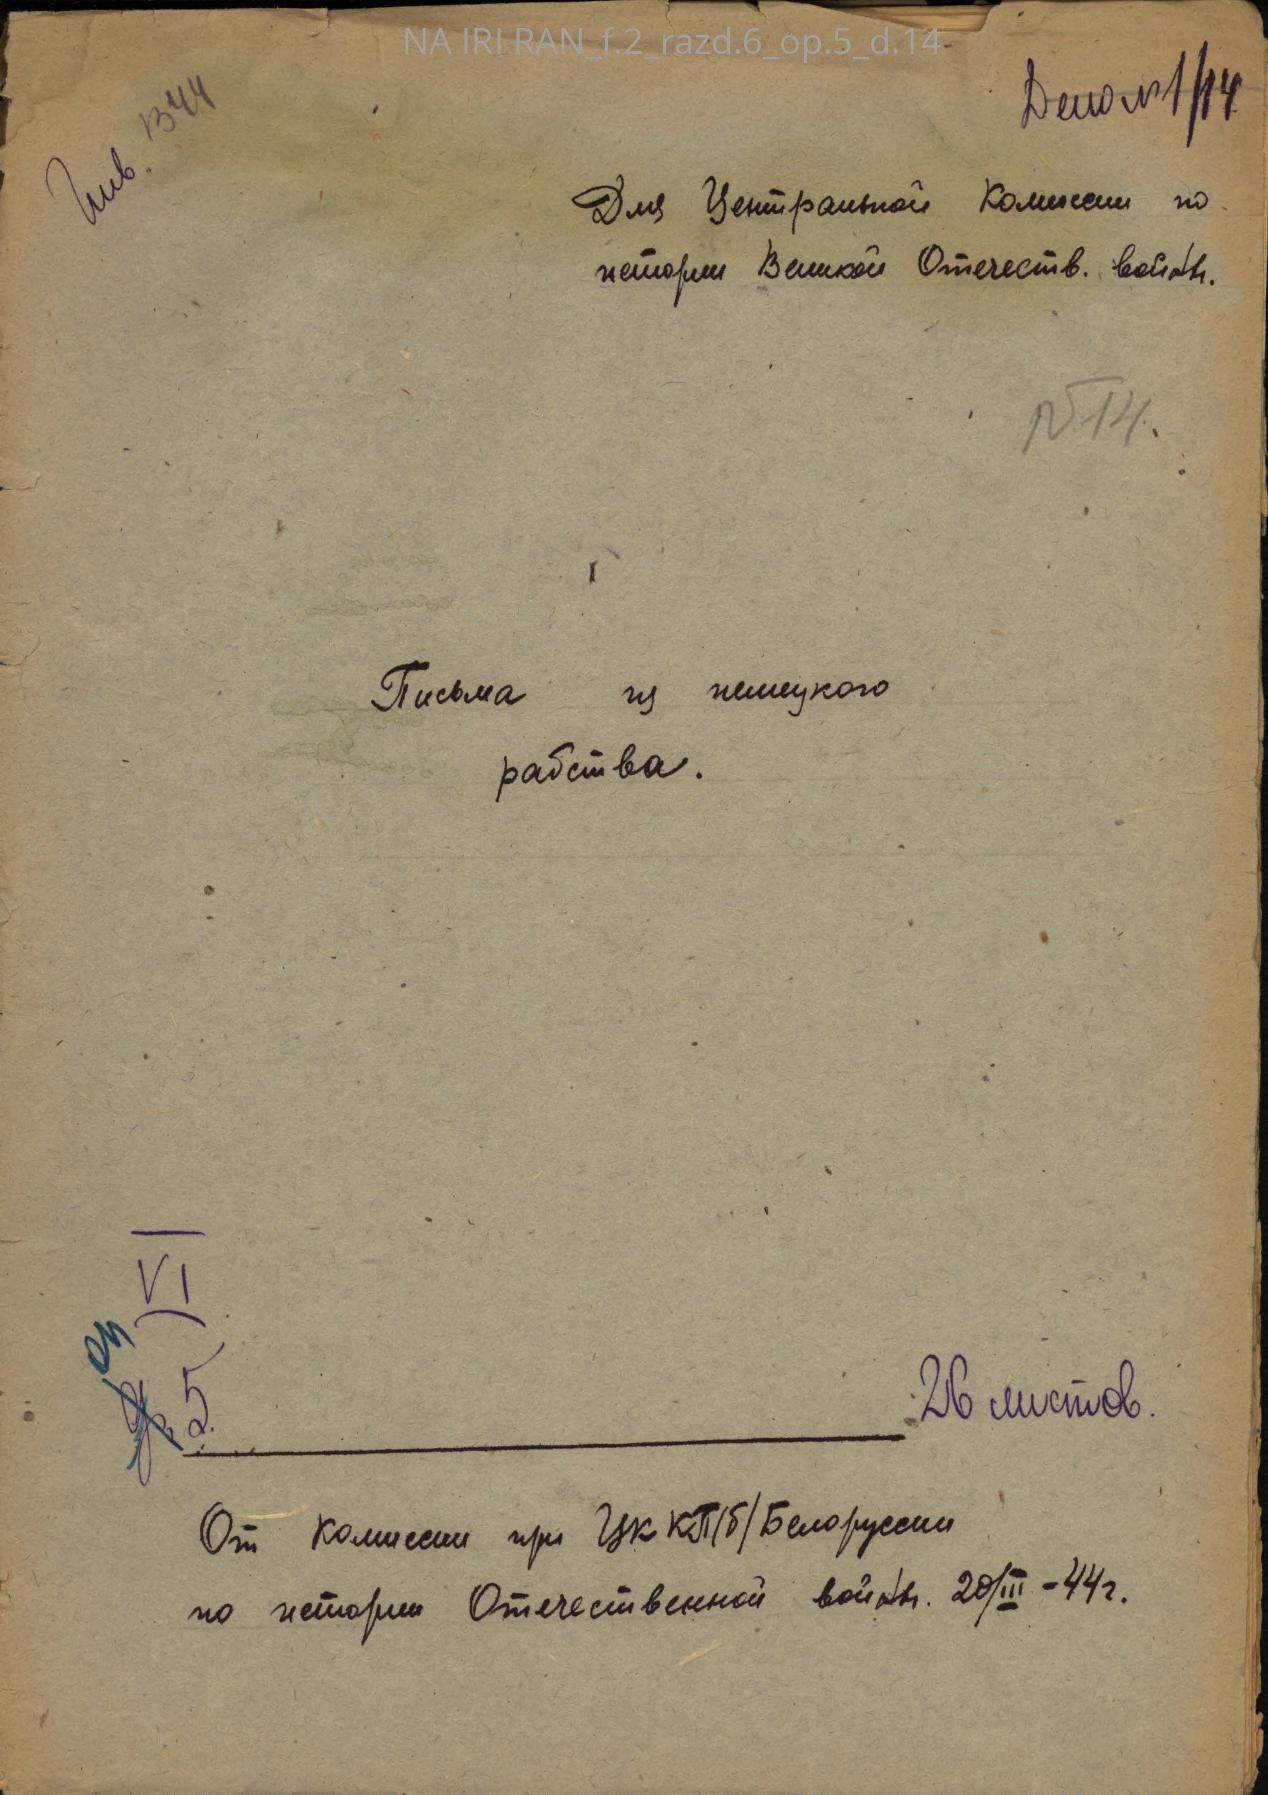 NA IRI RAN_f.2_razd.6_op.5_d.14
Дело №1/14
Инв. 1344
Для Центральной Комиссии по
истории Великой Отечеств. войны.
№14.
Письма из немецкого
рабства.
VI
оп
5
26 листов.
От Комиссии при ЦК КП/б/Белоруссии
по истории Отечественной войны. 20/III-44г.